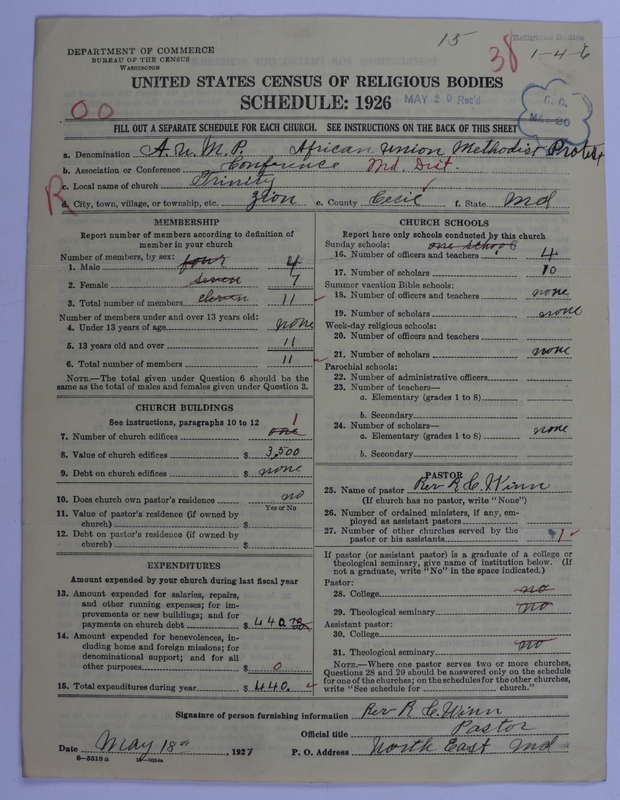 15
Religious Bodies
38 1-4-6
DEPARTMENT OF COMMERCE
BUREAU OF THE CENSUS
WASHINGTON
UNITED STATES CENSUS OF RELIGIOUS BODIES
SCHEDULE: 1926
MAY 20 Rec'd
00
C. C.
MAY 20
FILL OUT A SEPARATE SCHEDULE FOR EACH CHURCH. SEE INSTRUCTIONS ON THE BACK OF THIS SHEET
a. Denomination A. U. M. P. African Union Methodist Protest
b. Association or Conference Conference Md. Dist.
R
c. Local name of church Trinity
d. City, town, village, or township, etc. Zion e. County Cecil f. State Md
MEMBERSHIP
Report number of members according to definition of
member in your church
Number of members, by sex:
1. Male four 4
2. Female seven 7
3. Total number of members eleven 11
Number of members under and over 13 years old:
4. Under 13 years of age none
5. 13 years old and over 11
6. Total number of members 11
NOTE.—The total given under Question 6 should be the
same as the total of males and females given under Question 3.
CHURCH BUILDINGS
See instructions, paragraphs 10 to 12 1
7. Number of church edifices one
8. Value of church edifices $ 3,500
9. Debt on church edifices $ none
10. Does church own pastor's residence no
Yes or No
11. Value of pastor's residence (if owned by
church) $
12. Debt on pastor's residence (if owned by
church) $
EXPENDITURES
Amount expended by your church during last fiscal year
13. Amount expended for salaries, repairs,
and other running expenses; for im-
provements or new buildings; and for
payments on church debt $ 440.
14. Amount expended for benevolences, in-
cluding home and foreign missions; for
denominational support; and for all
other purposes $ 0
15. Total expenditures during year $ 440.
CHURCH SCHOOLS
Report here only schools conducted by this church
Sunday schools: one school
16. Number of officers and teachers 4
17. Number of scholars 10
Summer vacation Bible schools:
18. Number of officers and teachers none
19. Number of scholars none
Week-day religious schools:
20. Number of officers and teachers
21. Number of scholars none
Parochial schools:
22. Number of administrative officers
23. Number of teachers—
a. Elementary (grades 1 to 8)
b. Secondary
24. Number of scholars—
a. Elementary (grades 1 to 8) none
b. Secondary
PASTOR
25. Name of pastor Rev R. C. Winn
(If church has no pastor, write "None")
26. Number of ordained ministers, if any, em-
ployed as assistant pastors
27. Number of other churches served by the
pastor or his assistants 1
If pastor (or assistant pastor) is a graduate of a college or
theological seminary, give name of institution below. (If
not a graduate, write "No" in the space indicated.)
Pastor:
28. College no
29. Theological seminary no
Assistant pastor:
30. College
31. Theological seminary no
NOTE.—Where one pastor serves two or more churches,
Questions 28 and 29 should be answered only on the schedule
for one of the churches; on the schedules for the other churches,
write "See schedule for church."
Signature of person furnishing information Rev R. C. Winn
Official title Pastor
Date May 18th, 1927 P. O. Address North East Md
8—5518a